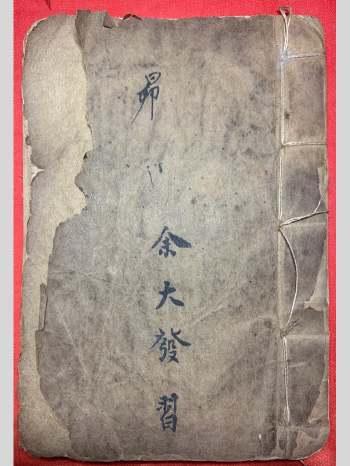 昴
余大發習